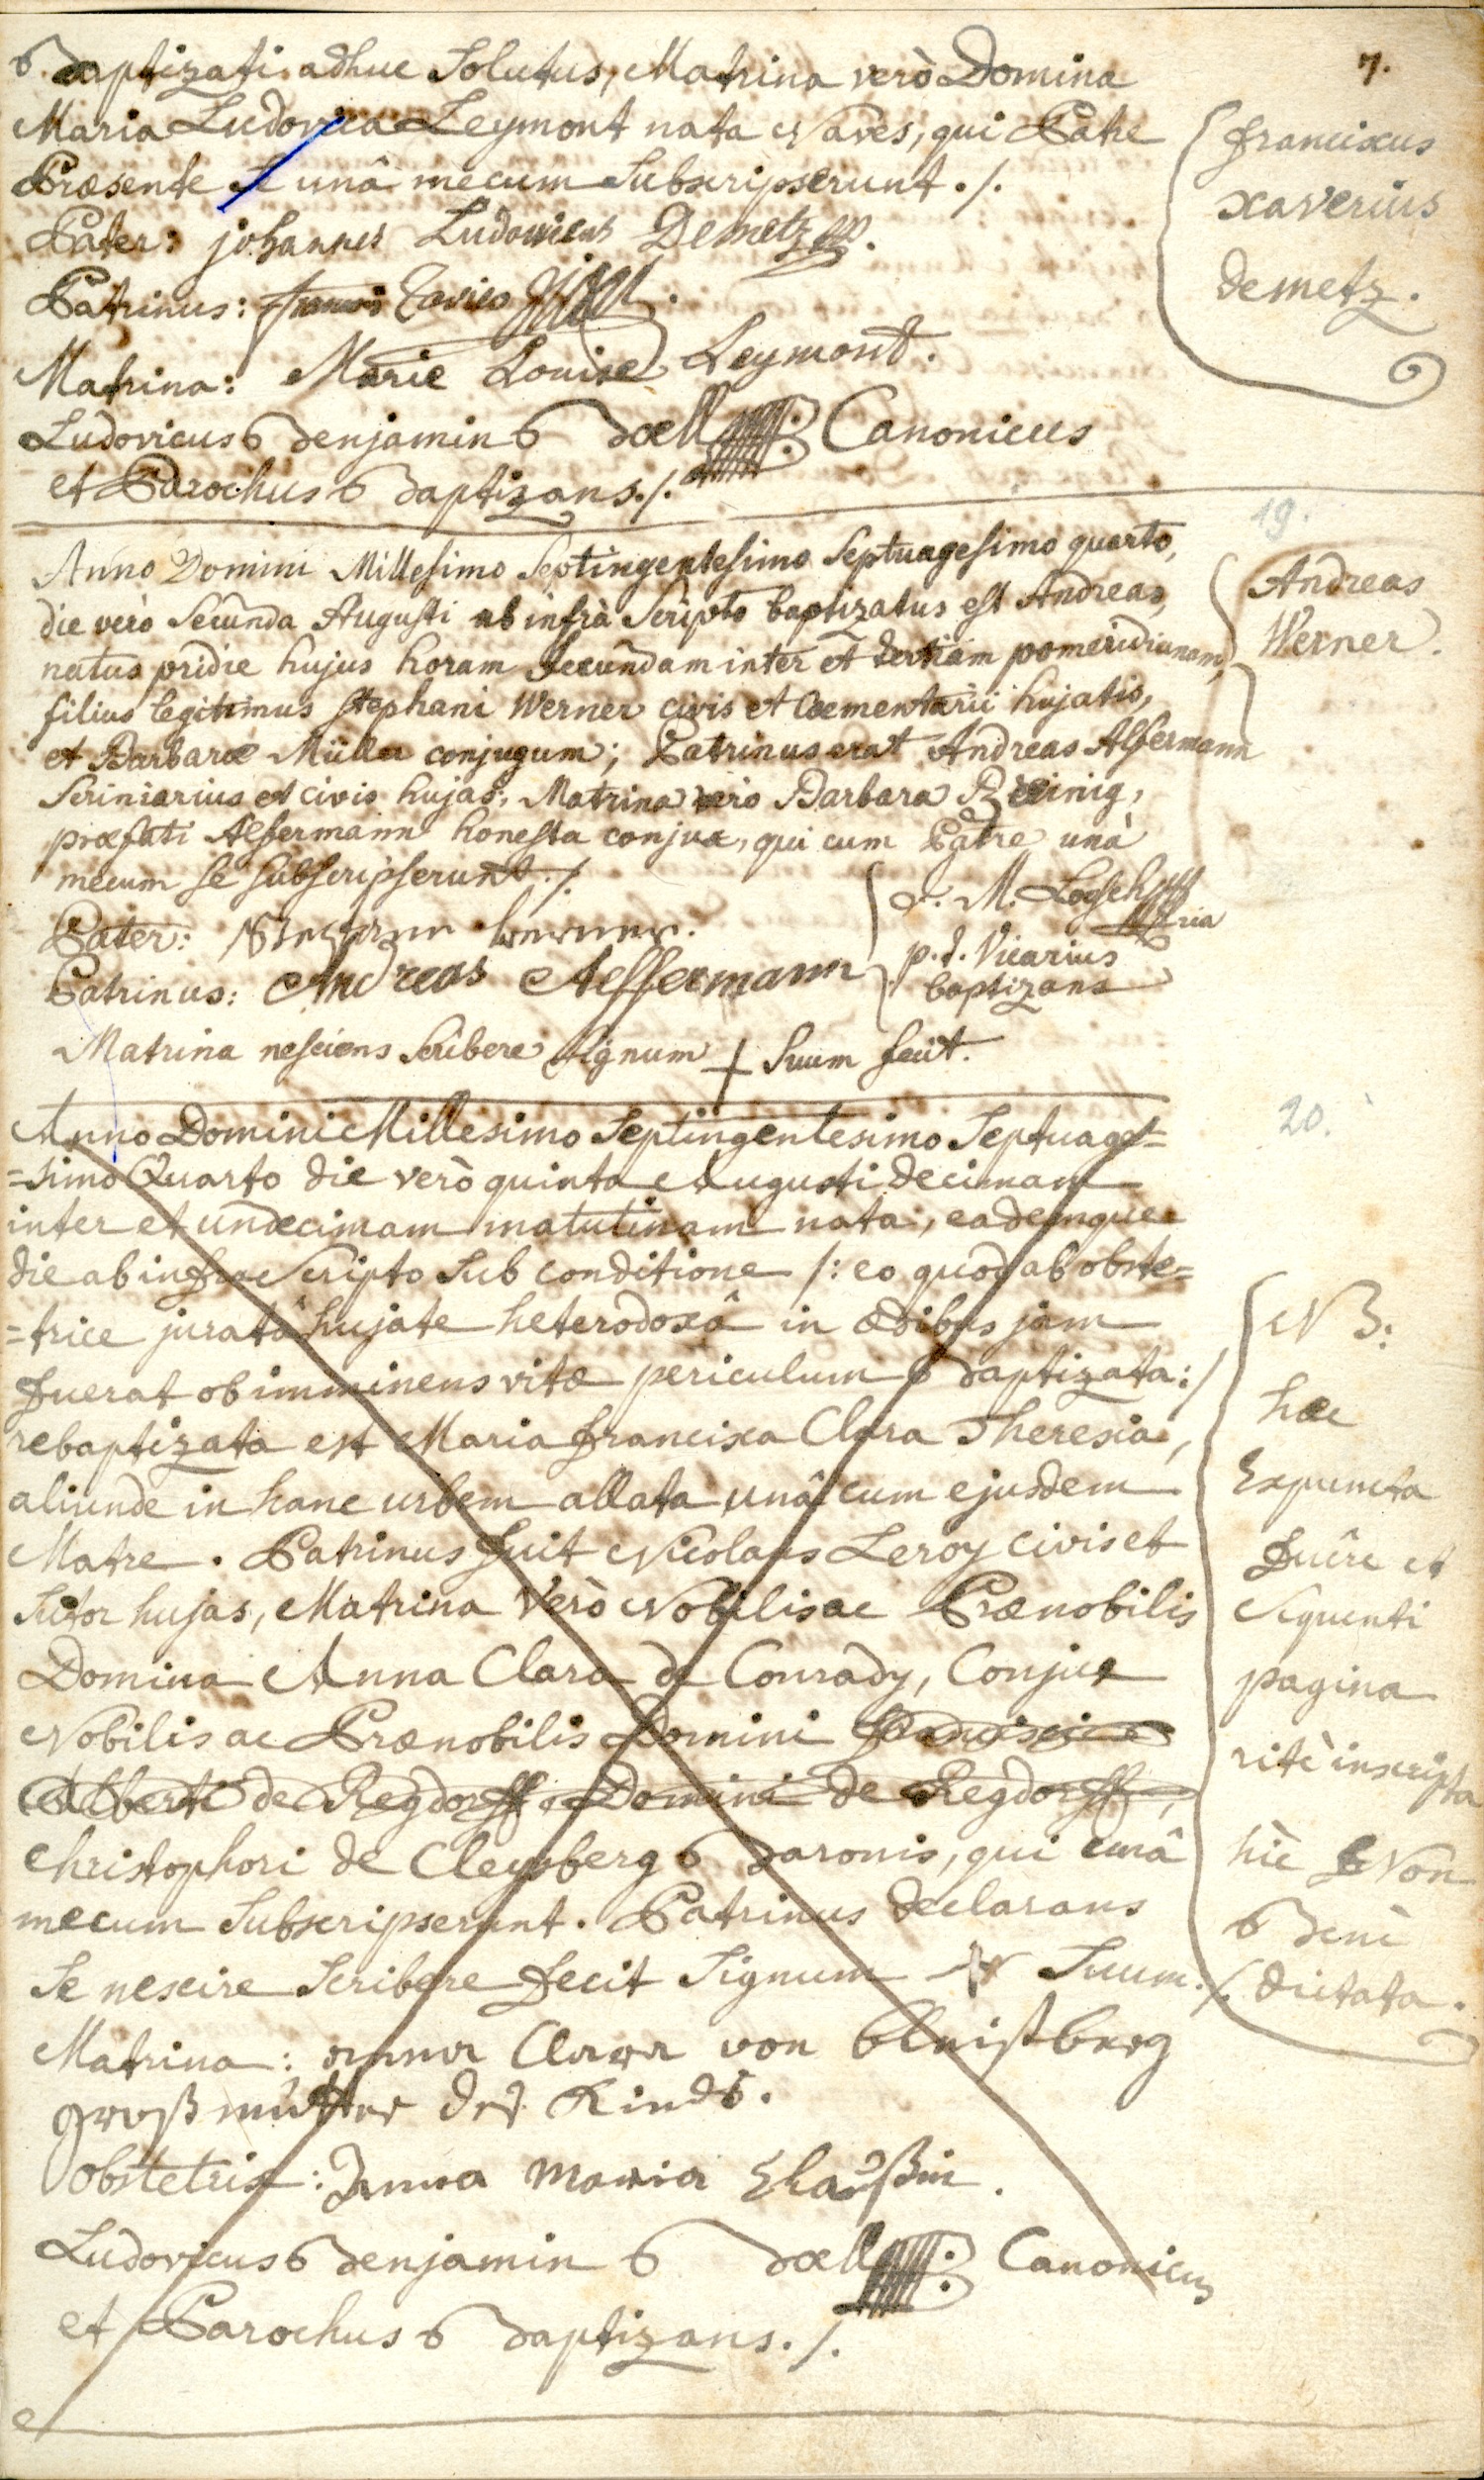 7.
Baptizati adhuc Solutus, Matrina verò Domina
Maria Ludovica Leymont nata Naves, qui Patre
Præsente se unâ mecum Subscripserunt ./.
Pater: johannes Ludovicus Demetz
Patrinus:
Matrina: Marie Louise Leymont.
Ludovicus Benjamin Bœll Canonicus
et Parochus Baptizans./.
franciscus
xaverius
demetz.
19.
Anno Domini Millesimo Septingentesimo Septuagesimo quarto,
die verò Secunda Augusti ab infrà Scripto baptizatus est Andreas,
natus pridie hujus horam Secundam inter et tertiam pomeridianam,
filius legitimus Stephani Werner civis et Cœmentarii hujatis,
et Barbaræ Müller conjugum; Patrinus erat Andreas Alsermann
Scriniarius et civis hujas, Matrina vero Barbara Breinig,
præfati Alsermann honesta conjux, qui cum Patre unà
mecum se subscripserunt./.
Pater:
Patrinus: Andreas Alssermann
Matrina nesciens Scribere Signum + Suum fecit.
p.t. Vicarius
baptizans
Andreas
Werner.
20.
Anno Domini Millesimo Septingentesimo Septuage=
=simo Quarto die verò quinta Augusti decimam
inter et undecimam matutinam nata, eademque
die ab infra Scripto Sub conditione /: eo quod ab obste=
=trice juratâ hujate heterodoxâ in ædibus jam
fuerat ob imminens vitæ periculum Baptizata:/
rebaptizata est Maria francisca Clara Theresia,
aliunde in hanc urbem allata unâ cum ejusdem
Matre. Patrinus fuit Nicolaus Leroy civis et
Sutor hujas, Matrina Verò Nobilis ac Prænobilis
Domina Anna Clara de Conrady, Conjux
Nobilis ac Prænobilis Domini Francisci
Alberti de Regdorff Domini de Regdorff,
Christophori de Cleysberg Baronis, qui unâ
mecum Subscripserunt. Patrinus declarans
Se nescire Scribere fecit Signum Suum./.
Matrina: anna Clara von
großmutter des Kinds.
Obstetrix: Anna Maria
Ludovicus Benjamin Bœll Canonicus
et Parochus Baptizans./.
NB:
hæc
Expuncta
fuêre et
Sequenti
pagina
ritè inscripta
hìc Non
Benè
dictata.